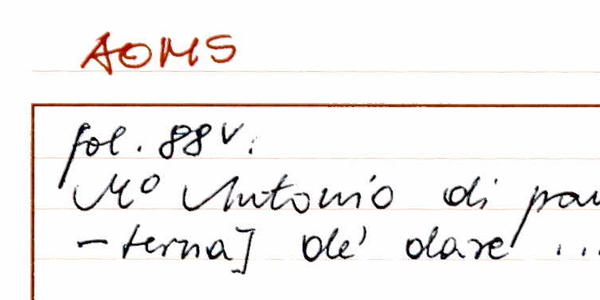 AOMS
fol. 88v:
Mº Antonio di pau
-terna] de' dare ...